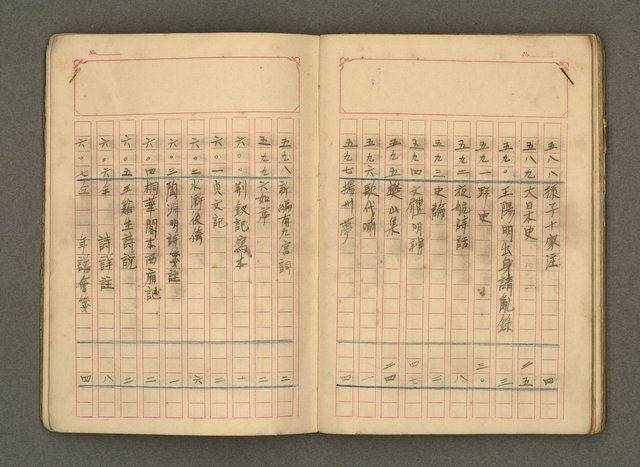 五八八孫子十家注 四
五八九大日本史 二五
五九〇王陽明出身靖亂錄 三
五九一野史 三〇
五九二夜航詩話 八
五九三史論 二
五九四文體明辨 四七
五九五樊山集 二四
五九六歐代嘲 一
五九七揚州夢 四
五九八新編南九宮詞 二
五九九六如亭 二
六〇〇荊釵記寫本 十
六〇一貞文記 二
六〇二水滸後傳 六
六〇三陶淵明詩箋註 一
六〇四桐華閣本西廂記 二
六〇五玉谿生詩說 二
六〇六 〃 詩詳註 八
六〇七 〃 年譜會箋 四
No.
No.